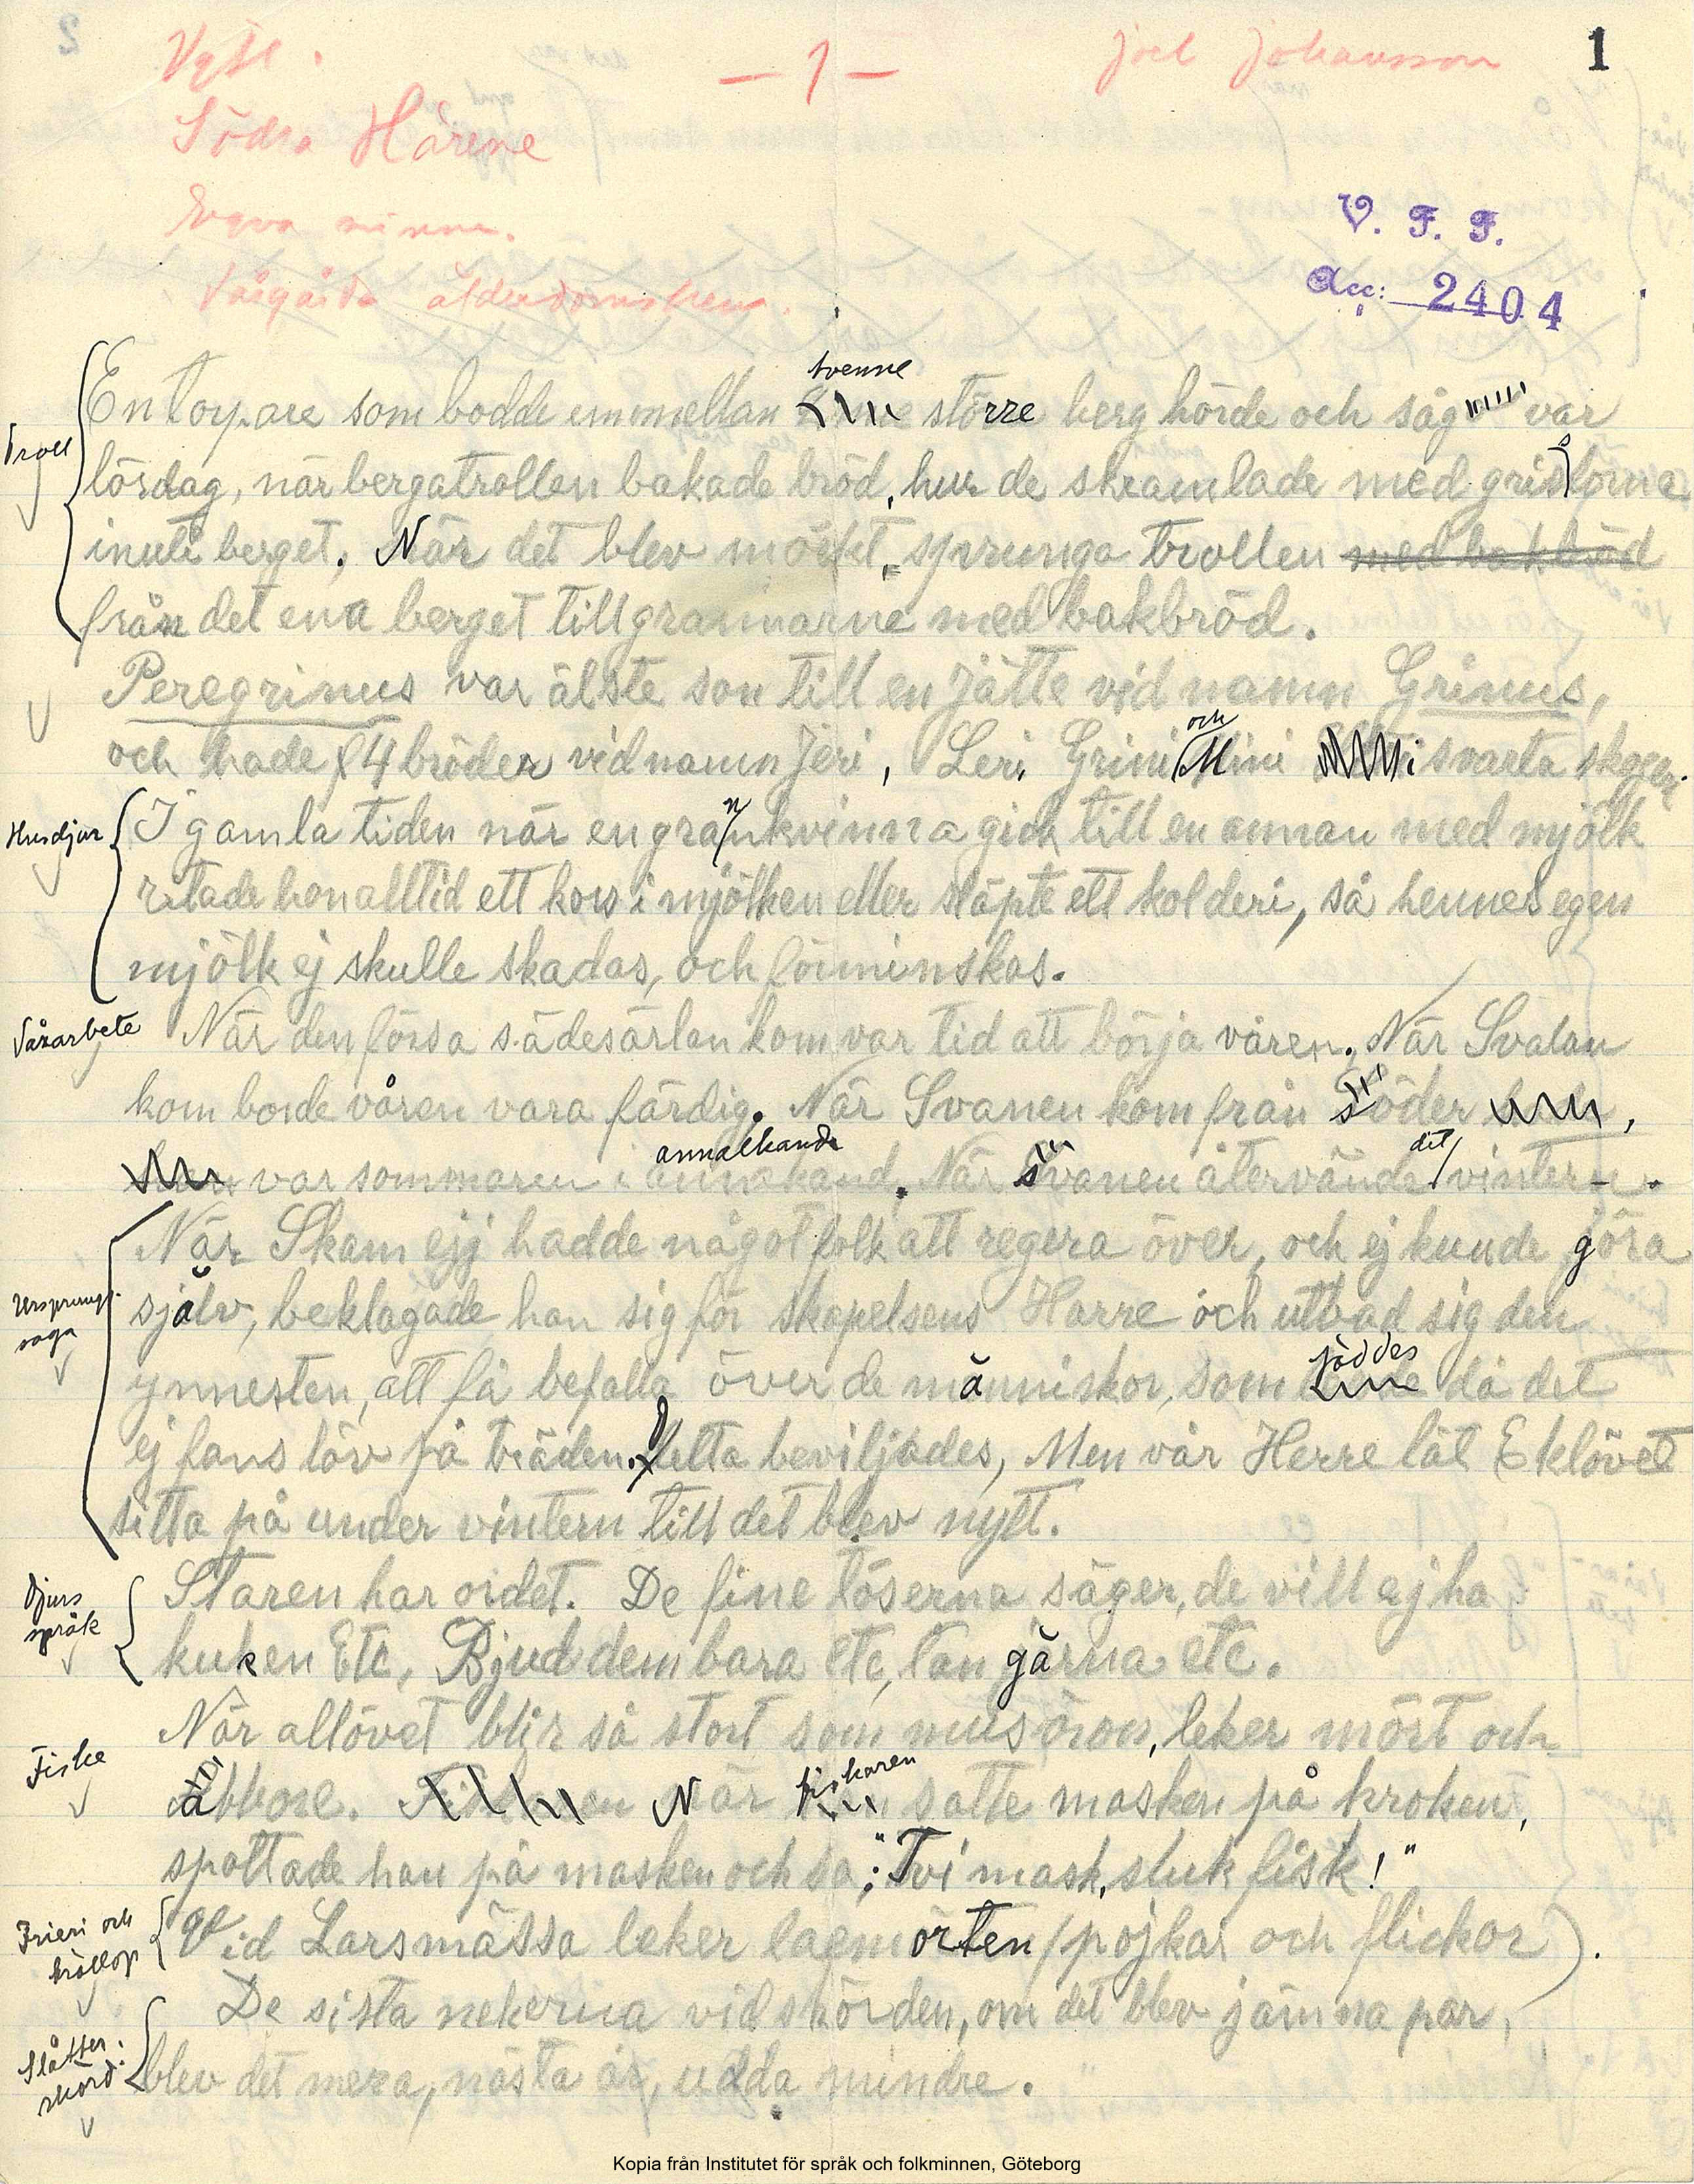 Vgtl. — 1 — Joel Johansson 1
Södra Härene
Egna minne.
Vårgårda ålderdomshem.
V. F. F.
Acc: 2404
Troll
En torpare som bodde emmellan tvenne större berg hörde och såg var
lördag, när bergatrollen bakade bröd, hur de skramlade med grisslorna
inuti berget. När det blev mörkt, sprunga trollen med bakbröd
från det ena berget till grannarne med bakbröd.
Peregrinus var älste son till en Jätte vid namn Grinus,
och hade 4 bröder vid namn Jeri, Leri, Grini och Mini i svarta skogen.
Husdjur
I gamla tiden när en grannkvinna gick till en annan med mjölk
ritade hon alltid ett kors i mjölken eller släpte ett kol deri, så hennes egen
mjölk ej skulle skadas, och förminskas.
Vårarbete
När den försa sädesärlan kom var tid att börja våren. När Svalan
kom borde våren vara färdig. När Svanen kom från söder,
var sommaren i annalkande. När svanen återvände det vintern.
Ursprungssaga
När Skam ejj hadde något folk att regera över, och ej kunde göra
själv, beklagade han sig för skapelsens Harre och utbad sig den
ynnesten, att få befalla över de människor, som föddes då det
ej fans löv på träden. Detta beviljades, Men vår Herre lät Eklövet
sitta på under vintern till det blev nytt.
Djurs språk
Staren har ordet. De fine töserna säger, de vill ej ha
kuken Etc, Bjud dem bara etc, tan gärna etc.
Fiske
När allövet blir så stort som musöron, leker mört och
abbore. När fiskaren satte masken på kroken,
spottade han på masken och sa: "Tvi mask, sluk fisk!"
Frieri och bröllop
Vid Larsmässa leker lagmörten (pojkar och flickor).
Slåtter. skörd.
De sista nekerna vid skörden, om det blev jämna par,
blev det mera, nästa år, udda mindre.
Kopia från Institutet för språk och folkminnen, Göteborg